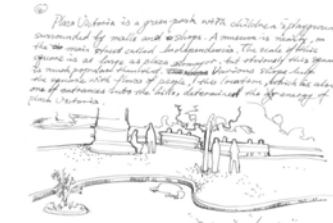 Plaza Victoria is a green park with children's playground
surrounded by malls and shops. A museum is nearby, on
the main street called Independencia. The scale of this
square is at large as plaza, but obviously this square
is much populated. Various shops help
the square with flows of people, & this location, which is also
one of entrances into the hills, determined the energy of
plaza Victoria.